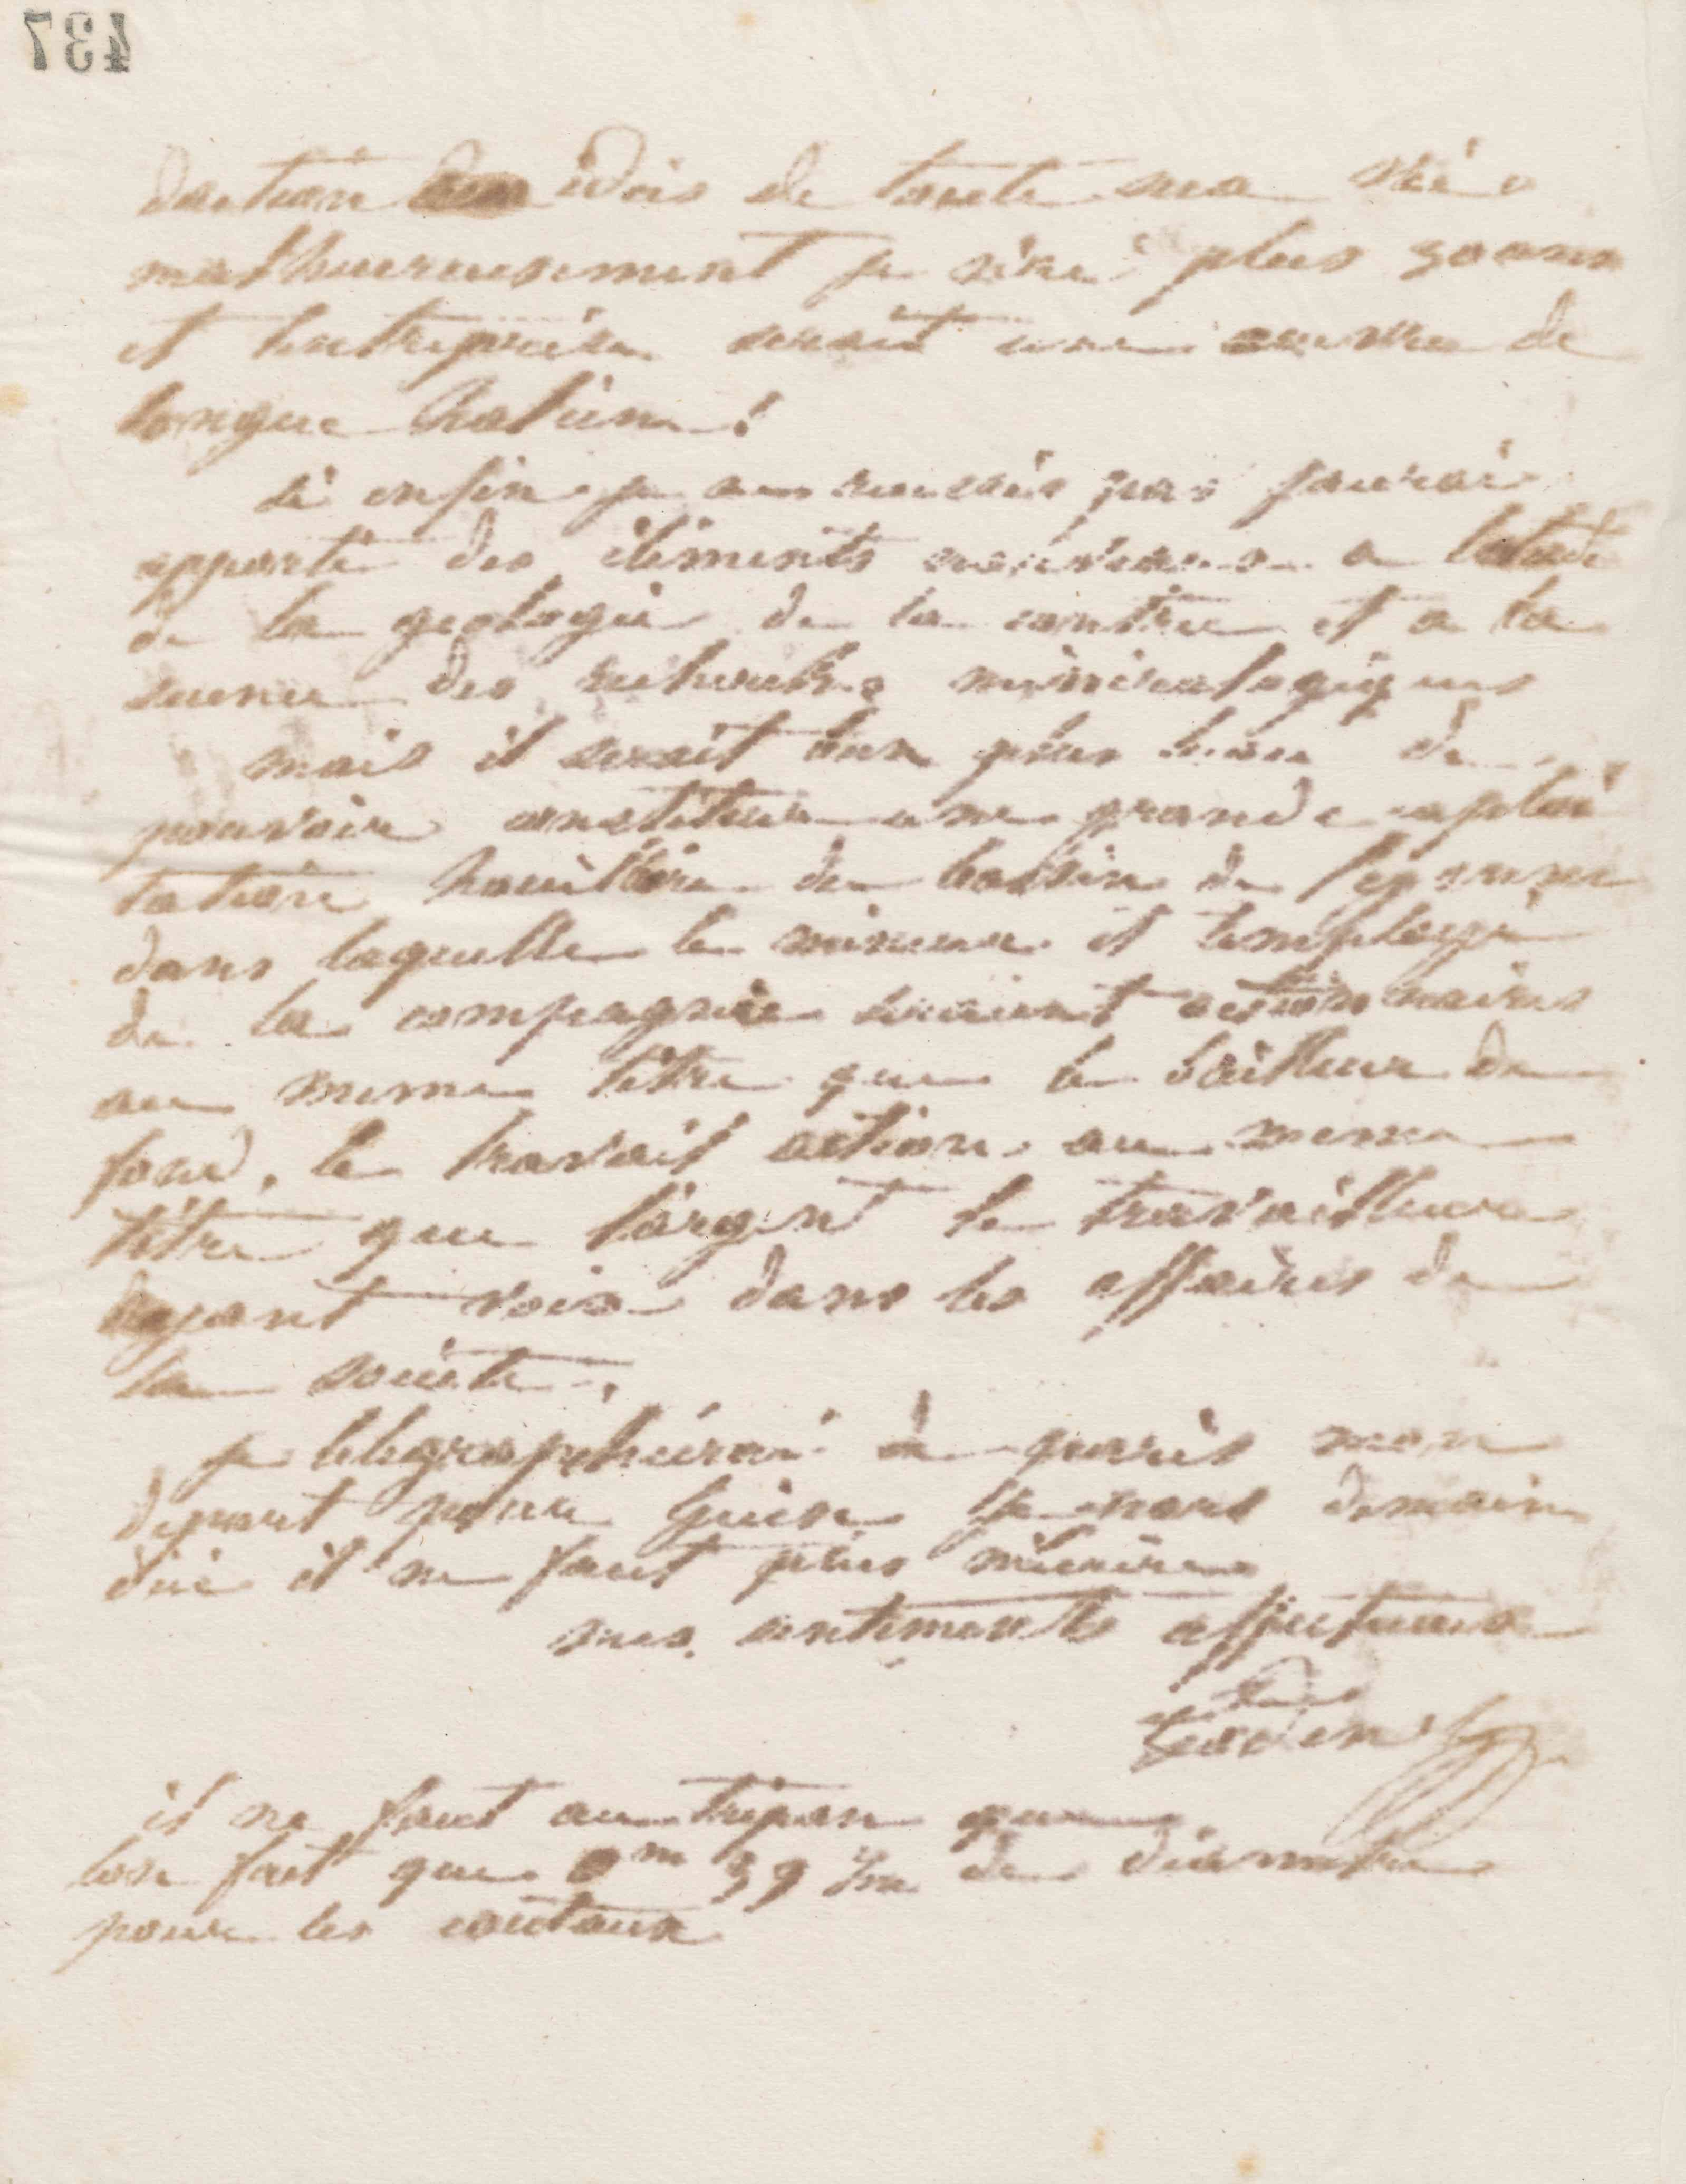 437
d'action des idées de toute ma vie
malheureusement je n'ai plus 30 ans
et l'entreprise serait une œuvre de
longue haleine !
si enfin je ne reussis pas j'aurai
apporté des éléments nouveaux a l'étude
de la geologie de la contrée et a la
science des recherches minéralogiques
mais il serait bien plus beau de
pouvoir constituer une grande exploi
tation houillère du bassin de
dans laquelle le mineur et l'employé
de la compagnie seraient actionnaires
au meme titre que le bailleur de
fond, le travail action au meme
titre que l'argent le travailleur
ayant voix dans les affaires de
la société.
je telegraphierai de paris mon
depart pour demain
il ne faut plus m'écrire
mes sentiments affectueux
Godin
il ne faut au trepan que
l'on fait que 0m 39 de diametre
pour les couteaux